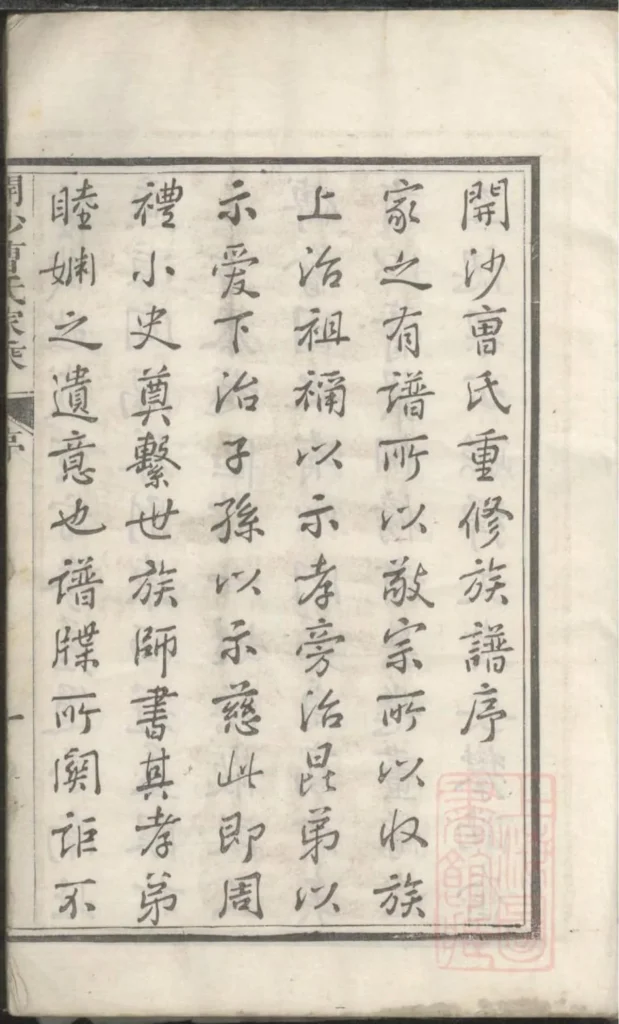 開沙曺氏重修族譜序
家之有譜所以敬宗所以收族
上治祖禰以示孝旁治昆弟以
示爱下治子孫以示慈此即周
禮小史奠繫世族師書其孝弟
睦婣之遺意也譜牒所関詎不
開沙曺氏家乗
序
一
上海圖書館藏